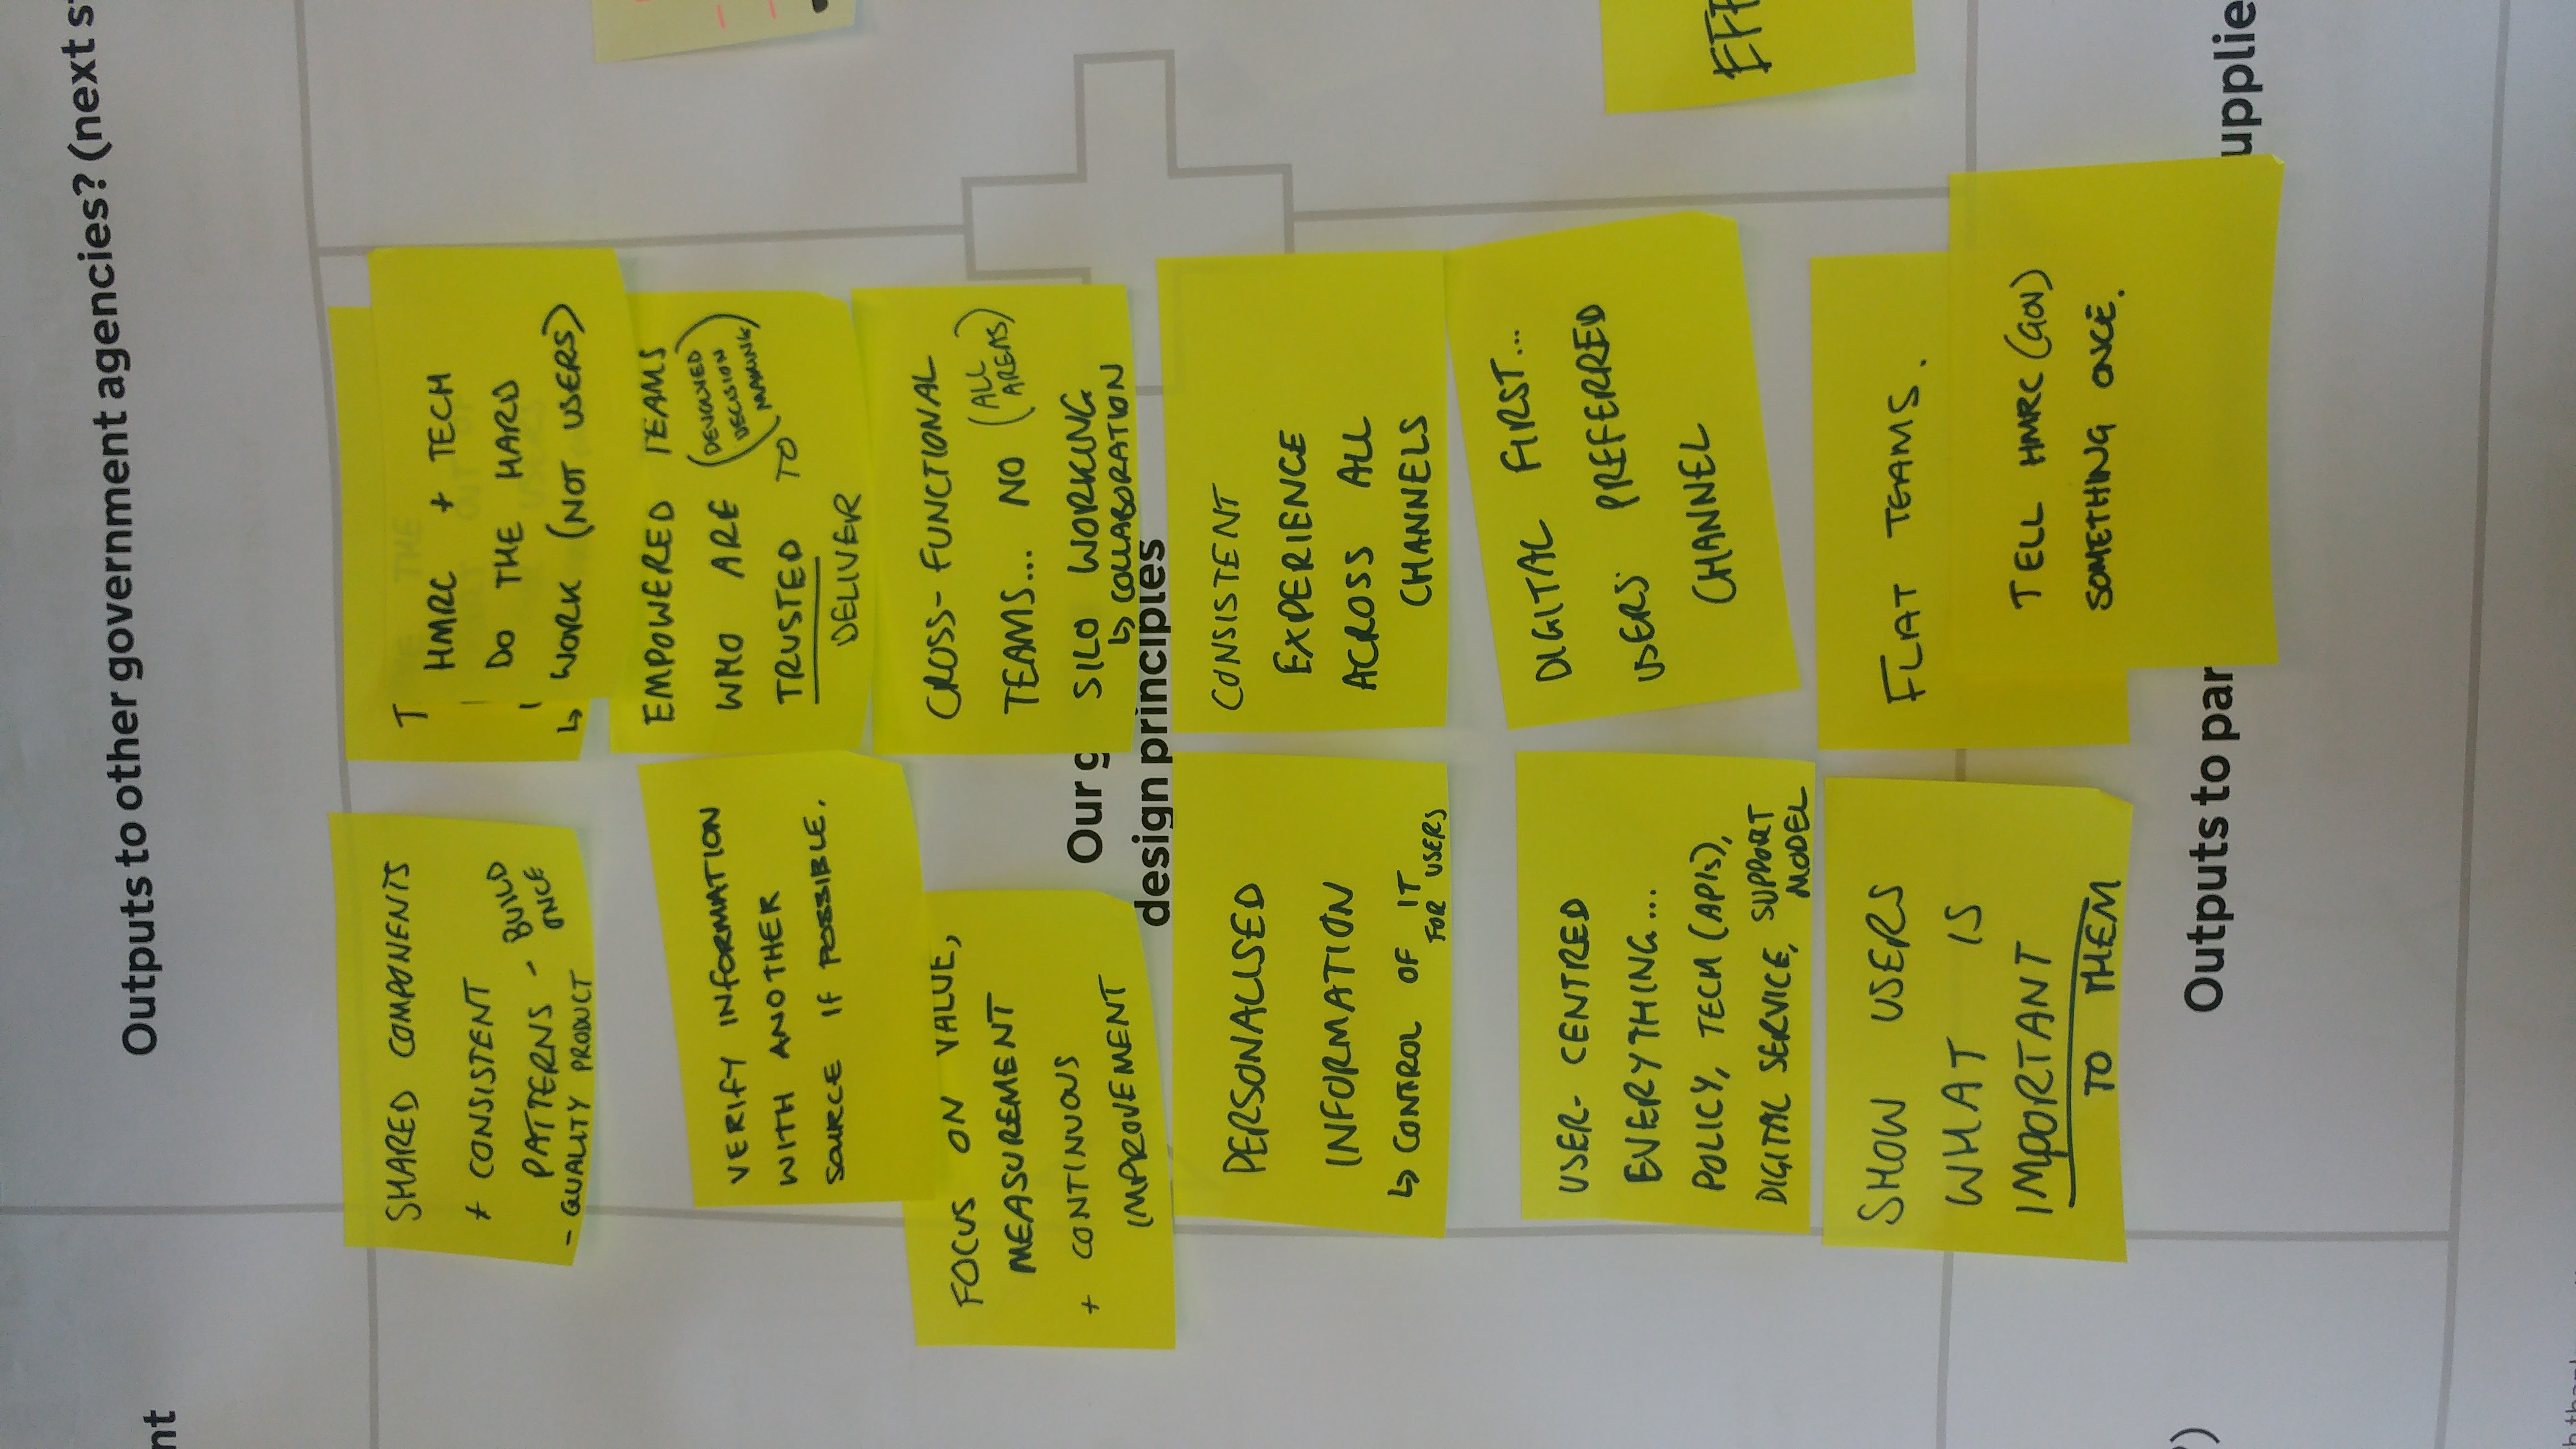 Outputs to other government agencies? (next s
nt
SHARED COMPONENTS
+ CONSISTENT
PATTERNS - BUILD
ONCE
- QUALITY PRODUCT
T
HMRC + TECH
DO THE HARD
↳ WORK (NOT USERS)
VERIFY INFORMATION
WITH ANOTHER
SOURCE IF POSSIBLE.
EMPOWERED TEAMS
WHO ARE (DEVOLVED
DECISION
MAKING)
TRUSTED TO
DELIVER
FOCUS ON VALUE,
MEASUREMENT
+ CONTINUOUS
IMPROVEMENT
CROSS-FUNCTIONAL
TEAMS... NO (ALL
AREAS)
SILO WORKING
↳ COLLABORATION
Our g
design principles
PERSONALISED
INFORMATION
↳ CONTROL OF IT
FOR USERS
CONSISTENT
EXPERIENCE
ACROSS ALL
CHANNELS
USER-CENTRED
EVERYTHING...
POLICY, TECH (APIs),
DIGITAL SERVICE, SUPPORT
MODEL
DIGITAL FIRST...
USERS PREFERRED
CHANNEL
EFF
SHOW USERS
WHAT IS
IMPORTANT
TO THEM
FLAT TEAMS.
TELL HMRC (GOV)
SOMETHING ONCE.
?)
Outputs to par
upplie